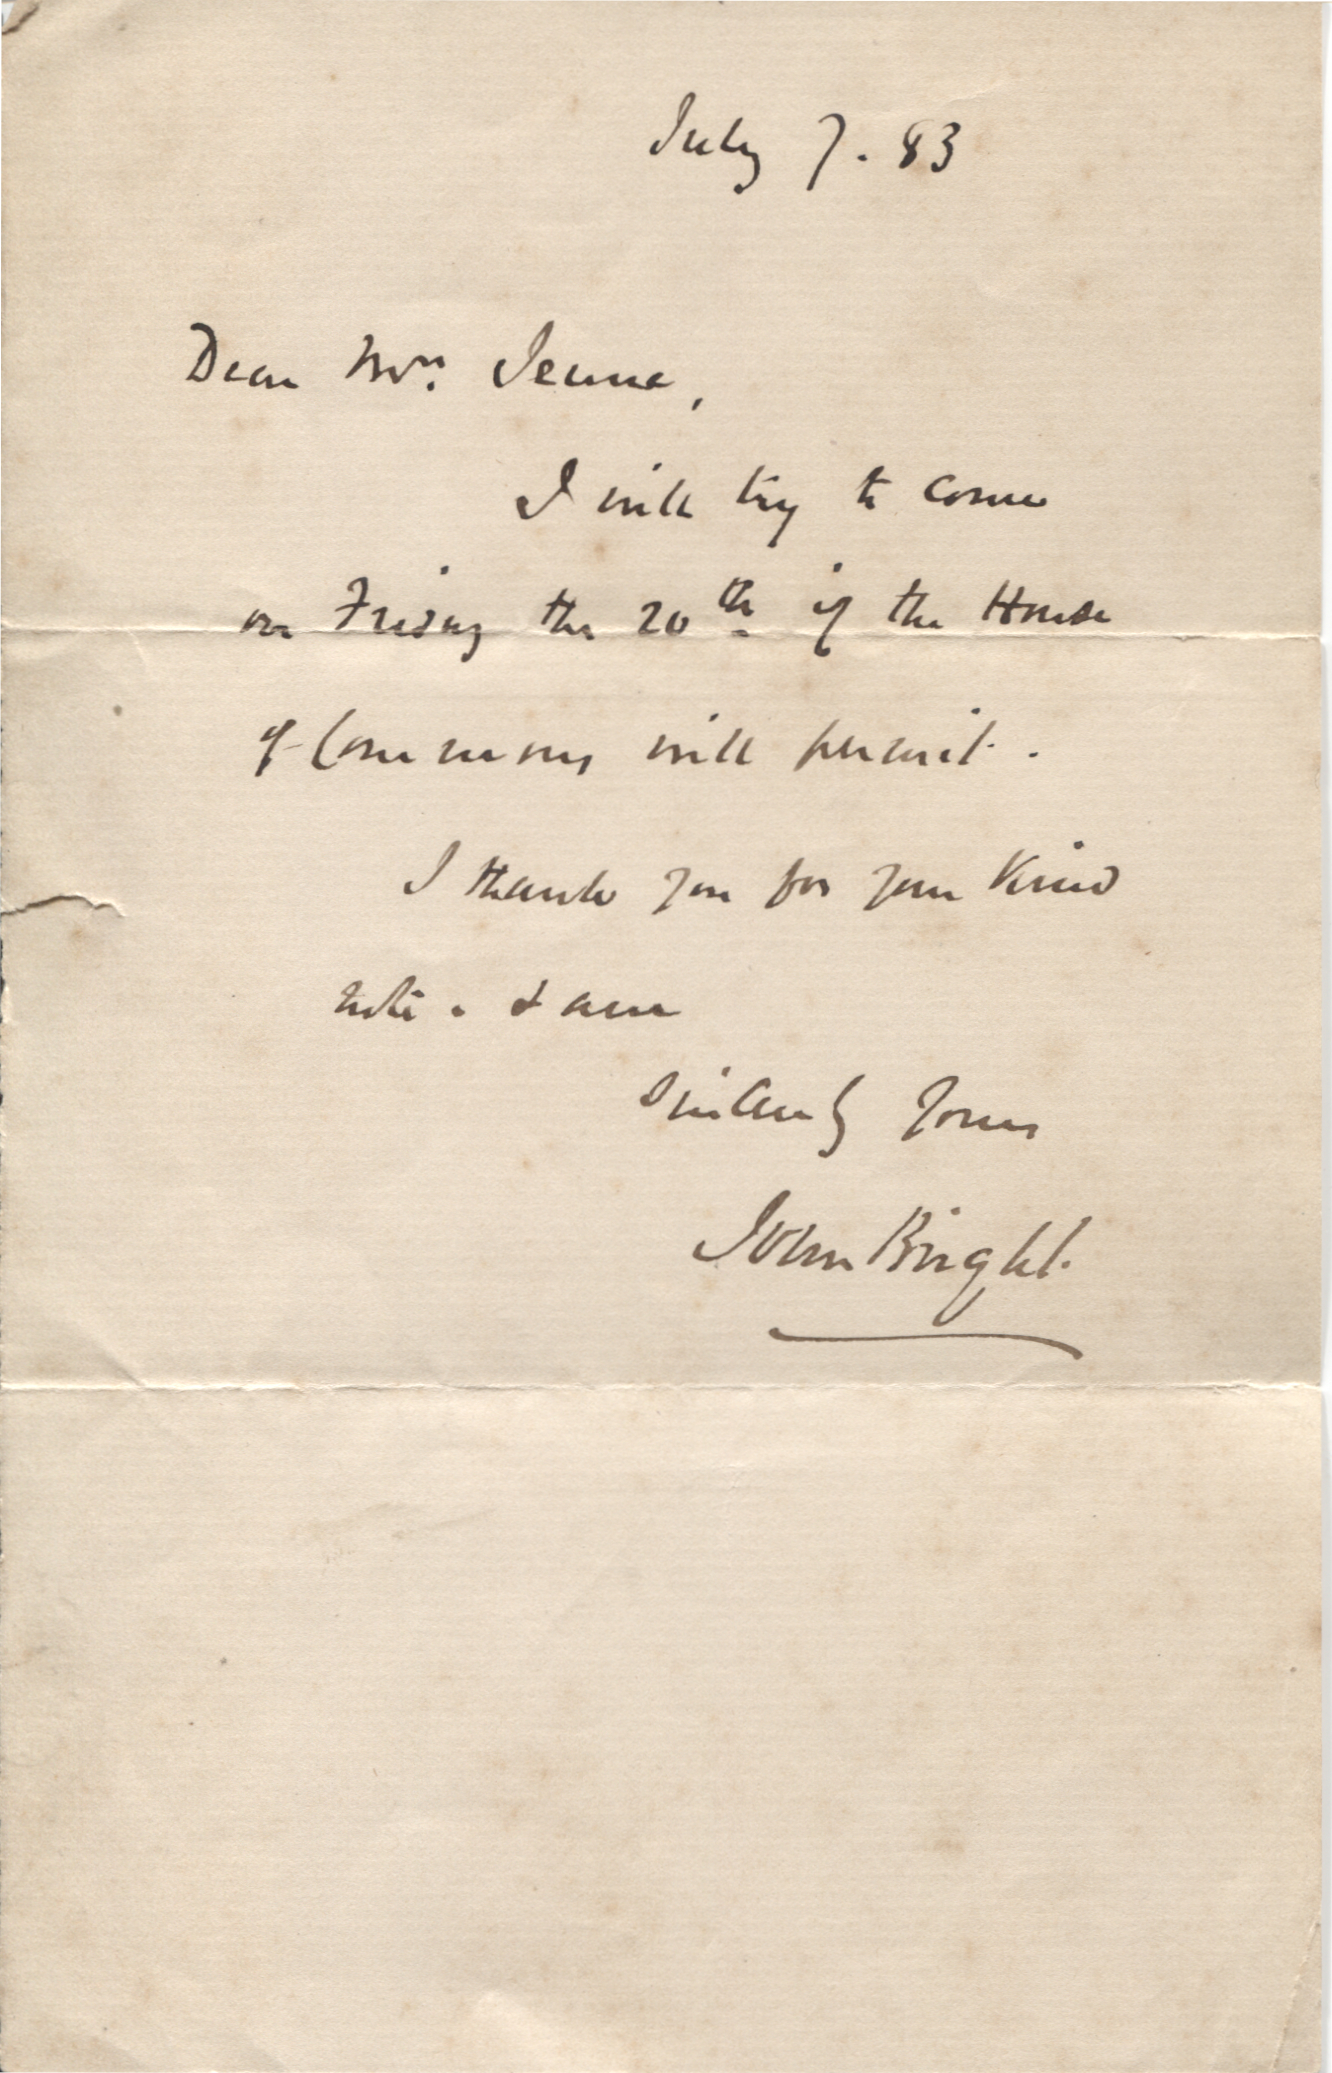 July 7. 83
Dear Mrs. Jeune,
I will try to come
on Friday the 20th if the House
of Commons will permit.
I thank you for your kind
note. & am
sincerely yours
John Bright.